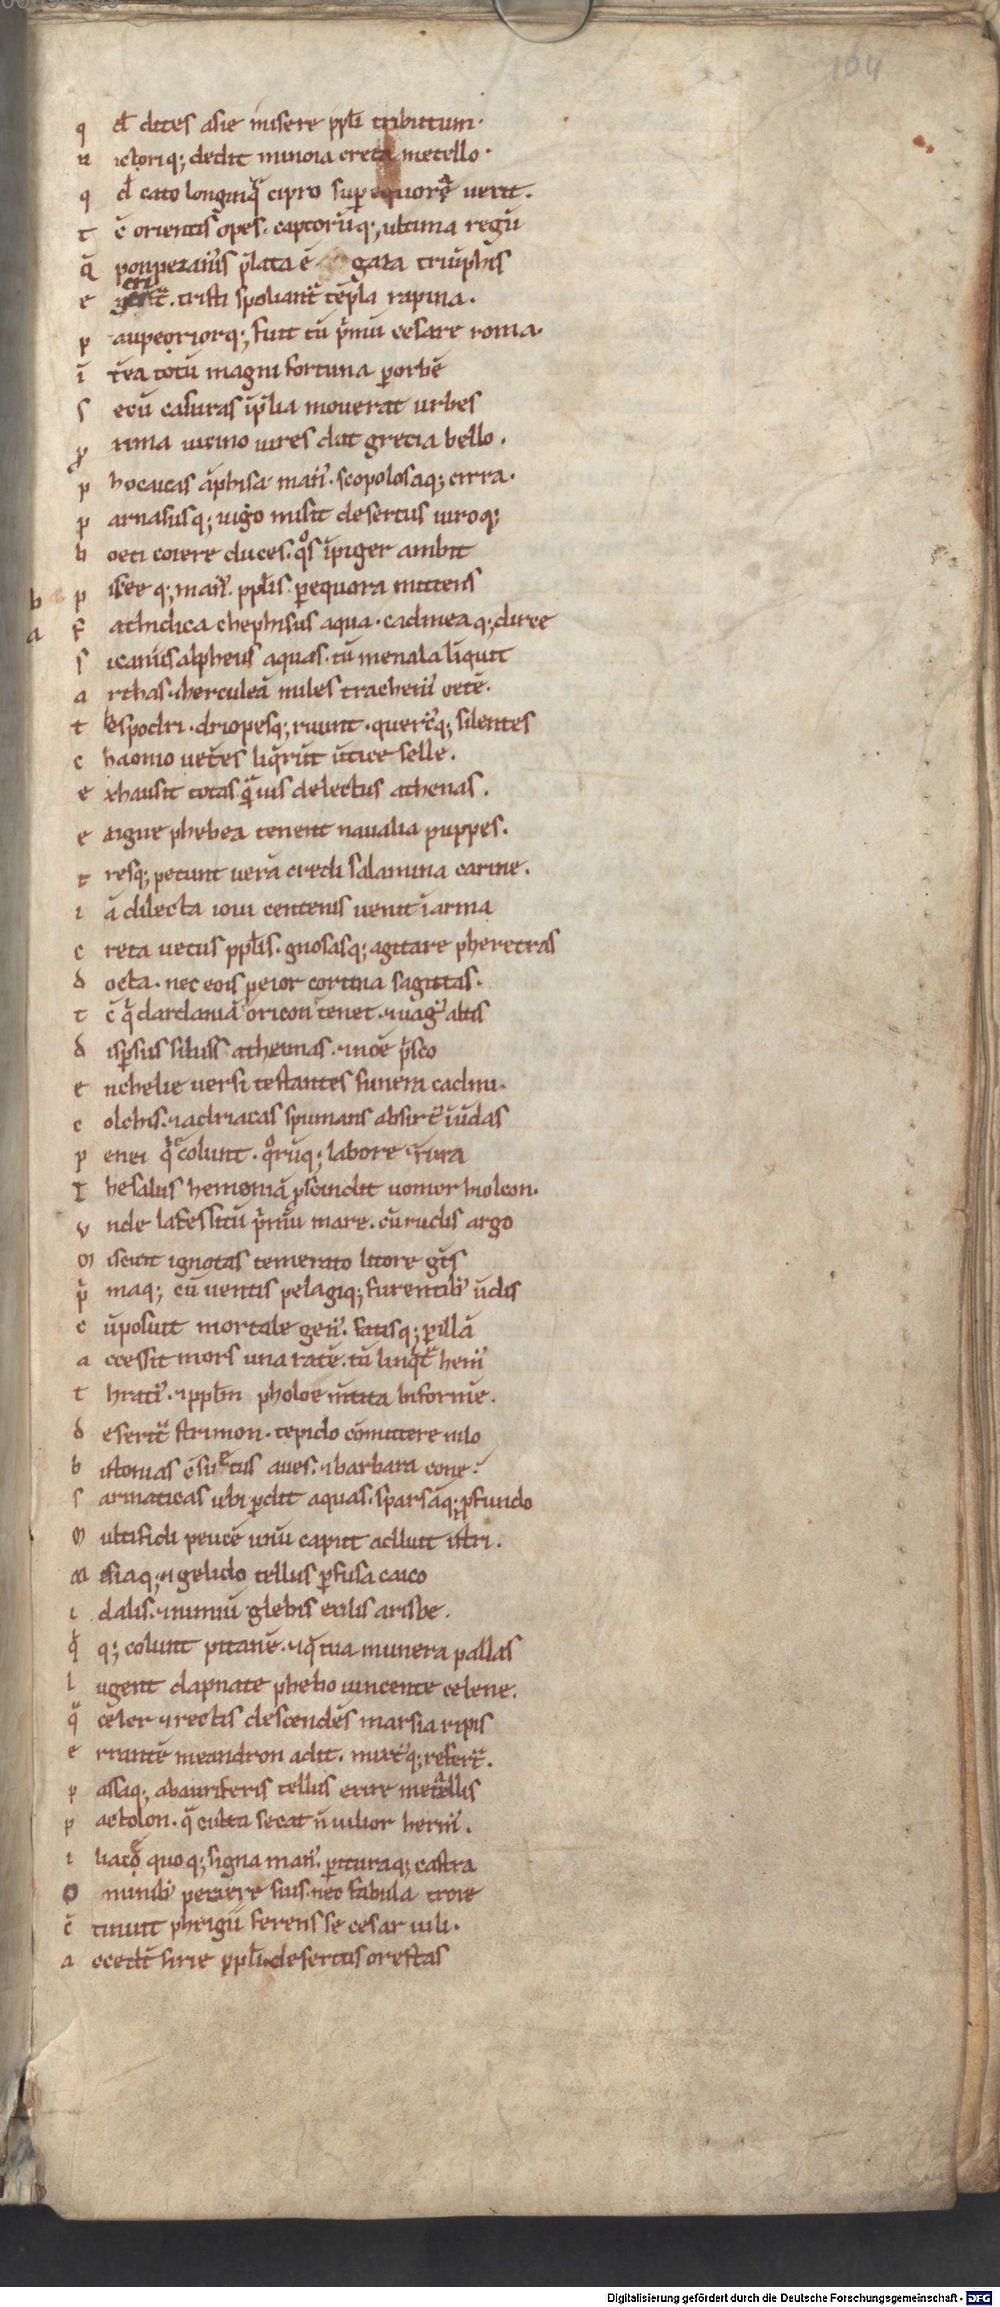 104
q d' dites asie misere ppl'i tributum.
u ictoriq; dedit minoia creta metello.
q d' cato longinq̃ cipro sup equore uerit.
t c̄ orientis opes. captorūq; ultima regū
q̄ pompeianis p̄lata ē gaza triūphis
e gerit̃. tristi spoliant̃ tēpla rapina.
p aupeoriorq; fuit tū p̃mū cesare roma.
ī terea totū magni fortuna p orbē
s ecū casuras ip̄lia mouerat urbes
p̱ xima uicino uires dat grecia bello.
p hocaicas āphisa man'. scopolosaq; cirra.
p arnasusq; iugo misit desertus utroq;
b oeti coiere duces. qos īpiger ambit
b p iseeq; man'. ppl'is. p equora mittens
a f athidica chephisus aqua. cadmeaq; dirce
s icaniis alpheus aquas. tū menala liquit
a rthas. ⁊ herculeā miles trachenn' oetē.
t hespodri. driopesq; ruunt. querc'q; silentes
c haonio ueteres liqrūt ūtice selle.
e xhausit totas q̃ uis delectus athenas.
e xigue phebea tenent naualia puppes.
t resq; petunt uerā credi salamina carine.
i ā dilecta ioui centenis uenit ī arma
c reta uetus ppl'is. gnosasq; agitare pheretras
d octa. nec eois peior cortina sagittas.
t c̄ q̃ dardaniā oricon tenet. ⁊ uag' altis
d isp̄sus siluis athemas. ⁊ nōe p̃sco
e nchelie uersi testantes funera cadmi.
c olchis. ⁊ adriacas spumans absirt' ī ūdas
p enei q̃ colunt. qorūq; labore rura
T hesalus hemoniā pscindit uomer hiolcon.
v nde lafessitū p̃mū mare. cū rudis argo
m iscuit ignotas temerato litore gētis
p̃ maq; cū uentis pelagiq; furentib' ūdis
c ūposuit mortale gen'. fatisq; p illā
a ccessit mors una ratē. tū linqt' hem'
t hraci'. ⁊ ppl'm pholoe mtita biformē.
d eserit̃ strimon. tepido cōmittere nilo
b istonias cōsuetus aues. ⁊ barbara cone.
s armaticas ubi pdit aquas. sparsāq; pfundo
m ultifidi peucē unū caput adluit istri.
m isiaq; ⁊ gelido tellus pfusa caico
i dalis. ⁊ nimiū glebis exilis arisbe.
q̃ q; colunt pitanē. ⁊ q̄ tua munera pallas
l ugent dapnate phebo uincente celene.
q̃ celer ⁊ rectis descendēs marsia ripis
e rrantē meandron adit. mixt'q; refert̃.
p assaq; ab auriferis tellus exire metallis
p actolon. q̃ culta secat ñ uilior herm'.
i liace quoq; signa man'. p ituraq; castra
O minib' petiere suis. nec fabula troie
c̄ tinuit phrigiū ferens se cesar iuli.
a ccedūt sirie ppl'i. desertus orestas
Digitalisierung gefördert durch die Deutsche Forschungsgemeinschaft - DFG